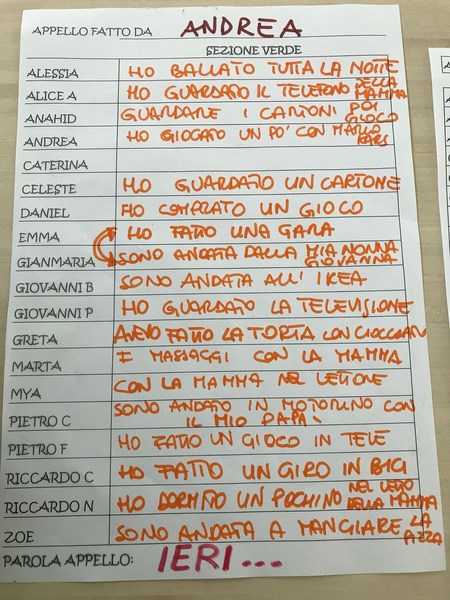 APPELLO FATTO DA ANDREA
SEZIONE VERDE
ALESSIA HO BALLATO TUTTA LA NOTTE
ALICE A HO GUARDATO IL TELEFONO DELLA MAMMA
ANAHID GUARDARE I CARTONI POI GIOCO
ANDREA HO GIOCATO UN PO' CON MARIO KARS
CATERINA
CELESTE HO GUARDATO UN CARTONE
DANIEL HO COMPRATO UN GIOCO
EMMA HO FATTO UNA GARA
GIANMARIA SONO ANDATA DALLA MIA NONNA GIOVANNA
GIOVANNI B SONO ANDATA ALL' IKEA
GIOVANNI P HO GUARDATO LA TELEVISIONE
GRETA AVEVO FATTO LA TORTA CON CIOCCOLATO
MARTA I MASSAGGI CON LA MAMMA
MYA CON LA MAMMA NEL LETTONE
PIETRO C SONO ANDATO IN MOTORINO CON IL MIO PAPÀ
PIETRO F HO FATTO UN GIOCO IN TELE
RICCARDO C HO FATTO UN GIRO IN BICI
RICCARDO N HO DORMITO UN POCHINO NEL LETTO DELLA MAMMA
ZOE SONO ANDATA A MANGIARE LA PIZZA
PAROLA APPELLO: IERI...